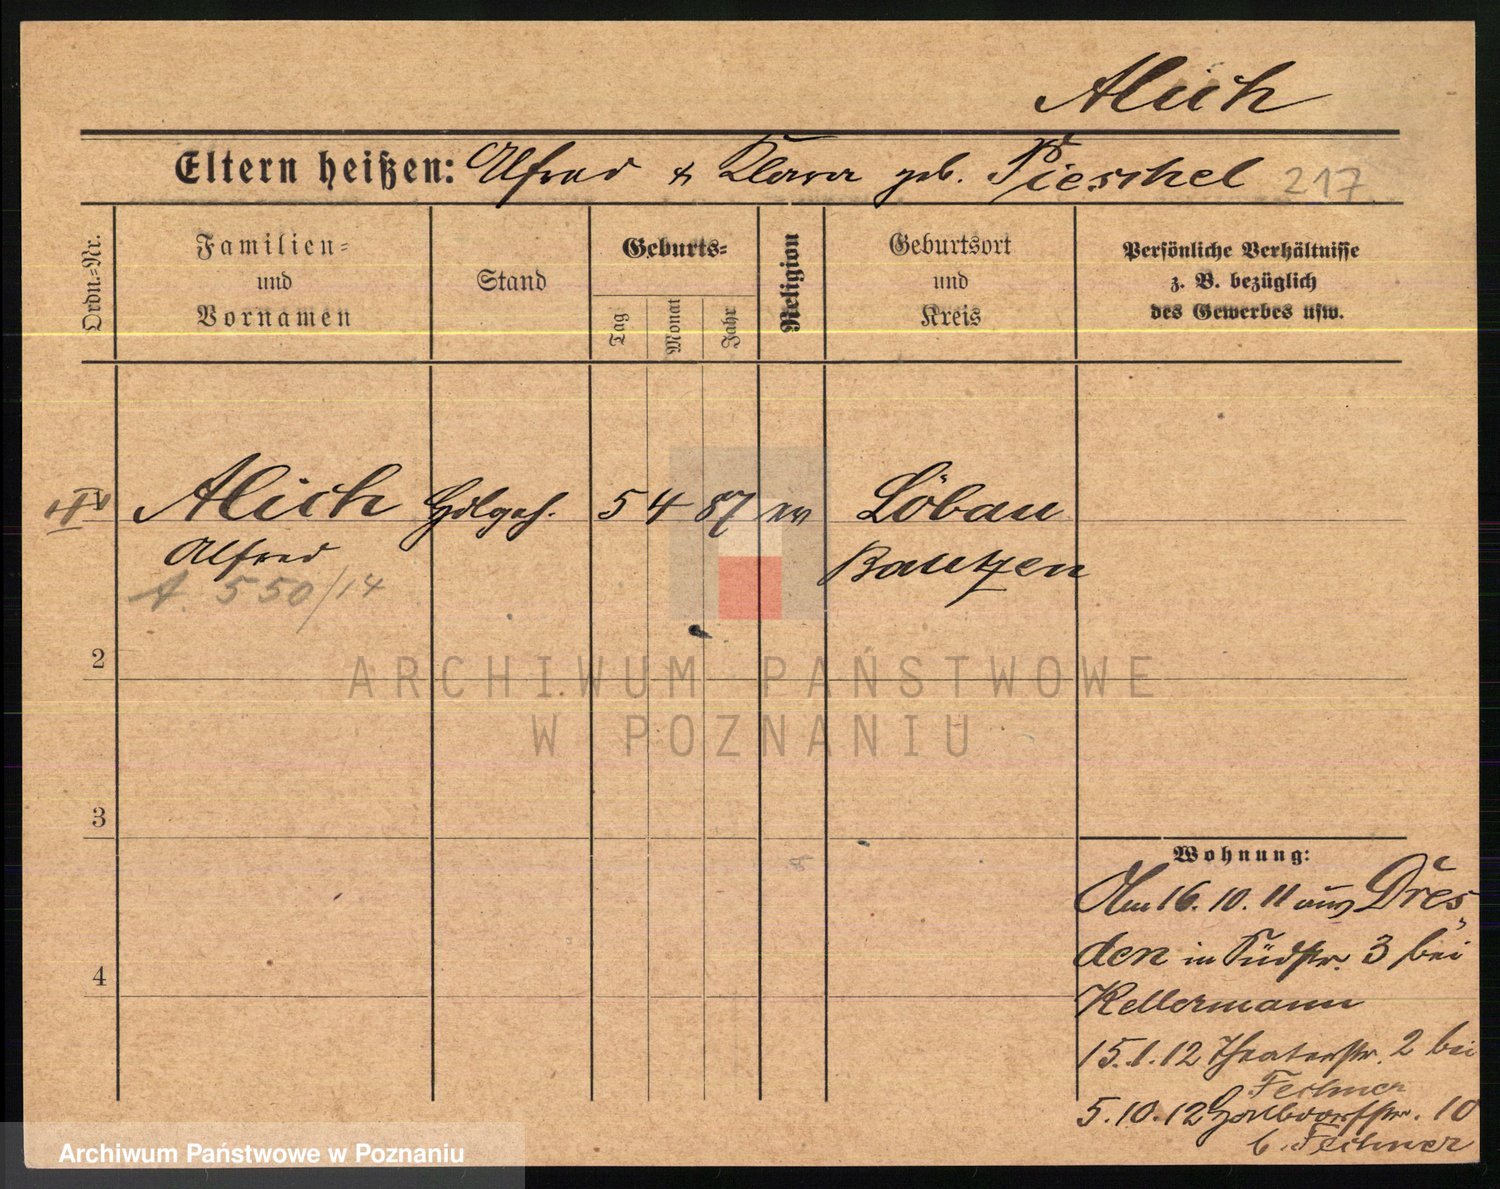 Alich
Eltern heißen: Alfred & Klara geb. Pieschel 217
Ordn.=Nr.
Familien=
und
Vornamen
Stand
Geburts=
Tag
Monat
Jahr
Religion
Geburtsort
und
Kreis
Persönliche Verhältnisse
z. B. bezüglich
des Gewerbes usw.
1 Alich Hdlgsh. 5 4 87 ev Löbau
Alfred Bautzen
A. 550/14
2
ARCHIWUM PAŃSTWOWE
W POZNANIU
3
4
Wohnung:
Am 16. 10. 11 aus Dres-
den in Südstr. 3 bei
Kellermann
15.1.12 Theaterstr. 2 bei
Fechner
5.10.12 Halbdorfstr. 10
b. Fechner
Archiwum Państwowe w Poznaniu